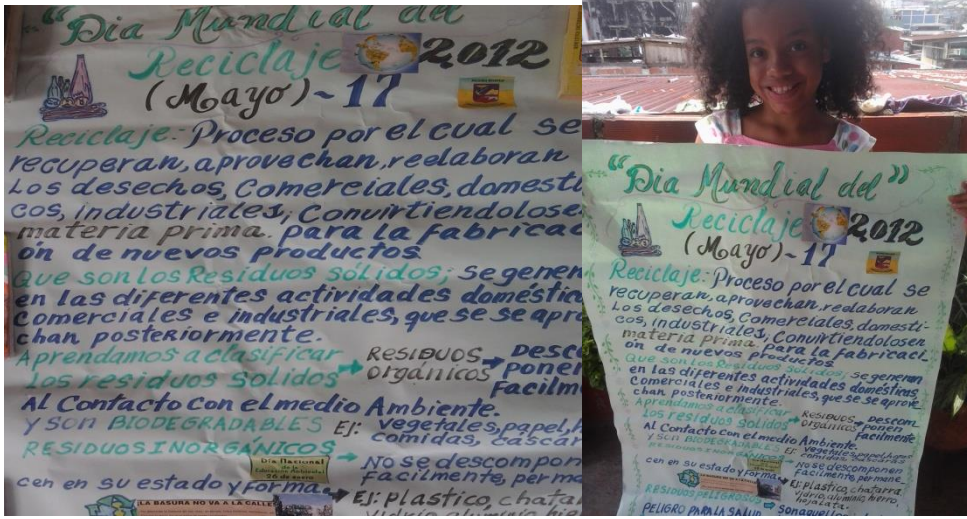 "Dia Mundial del
Reciclaje 2012
(Mayo)~17
Reciclaje:- Proceso por el cual se
recuperan, aprovechan, reelaboran
Los desechos, Comerciales, domesti
cos, industriales, Convirtiendolose
materia prima. para la fabricac
on de nuevos productos
Que son los Residuos sólidos; Se generan
en las diferentes actividades doméstic
comerciales e industriales, que se se apro
chan posteriormente.
Aprendamos a clasificar
Los residuos sólidos → RESIDUOS orgánicos → Desco
ponen
Facilm
Al Contacto con el medio Ambiente.
y son BIODEGRADABLES Ej: vegetales, papel,
comidas, cáscar
RESIDUOS INORGÁNICOS
Día Nacional
de la
Educación Ambiental
26 de enero
→ No se descompon
cen en su estado y forma
facilmente, perma
¡LA BASURA NO VA A LA CALLE
→ Ej: plastico, chatar
vidrio, aluminio, hie
"Dia Mundial del"
Reciclaje 2012
(Mayo)~17
Reciclaje:- Proceso por el cual se
recuperan, aprovechan, reelaboran
Los desechos, Comerciales, domesti-
cos, industriales, Convirtiendolosen
materia prima. para la fabricaci
on de nuevos productos
Que son los Residuos sólidos; Se generan
en las diferentes actividades domésticas,
Comerciales e industriales, que se se aprove
chan posteriormente.
Aprendamos a clasificar
Los residuos sólidos → RESIDUOS orgánicos → Descom
ponen
Facilmente
Al Contacto con el medio Ambiente
y son BIODEGRADABLE Ej: vegetales, papel, hueso
comidas, cascaras
RESIDUOS INORGÁNICOS
→ No se descomponen
cen en su estado y forma
facilmente, permane
→ Ej: plastico, chatarra
vidrio, aluminio, hierro,
hojalata.
RESIDUOS PELIGROSOS
PELIGRO PARA LA SALUD
Son aquellos